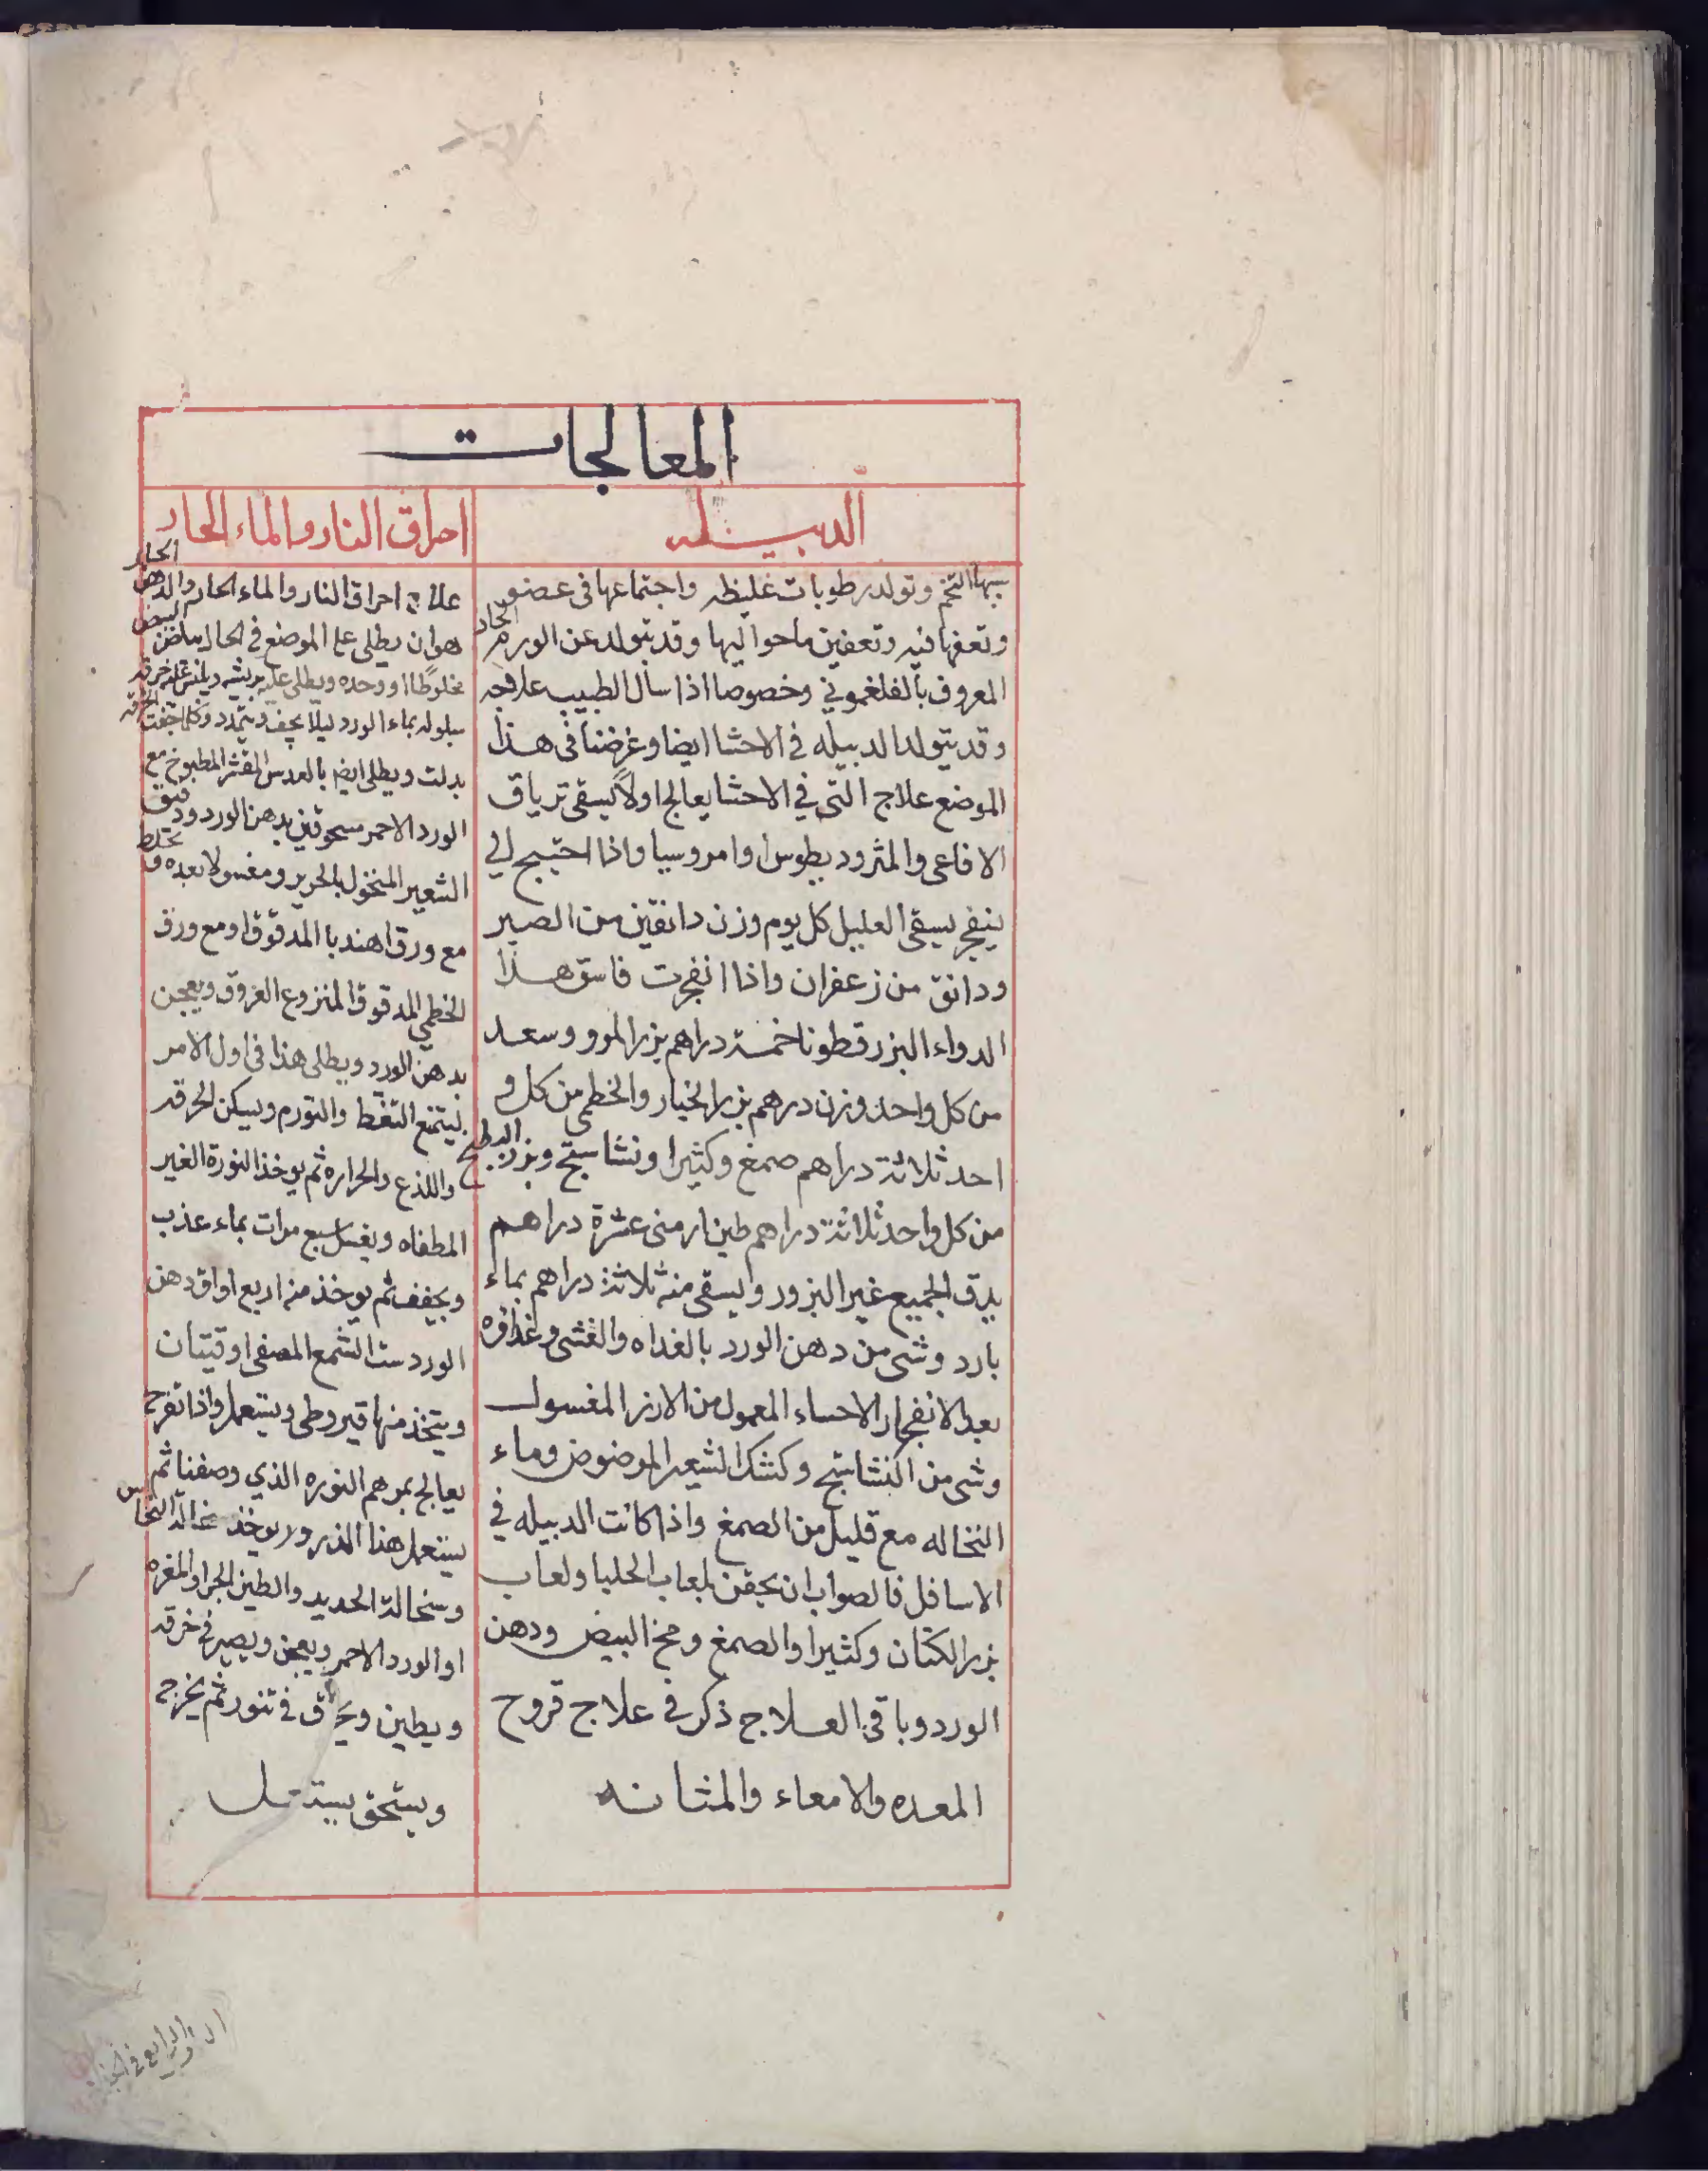 المعالجات
الدبيله
سببها التخم وتولد رطوبات غليظه واجتماعها في عضو
وتعفنها فيه وتعفين ما حواليها وقد يتولد عن الورم الحار
المعروف بالفلغموني وخصوصا اذا اسال الطبيب علاجه
وقد يتولد الدبيله في الاحشا ايضا وغرضنا في هذا
الموضع علاج التي في الاحشا يعالج اولاً يسقى ترياق
الافاعي والمثروديطوس او امروسيا واذا احتيج الي
ينفجر يسقى العليل كل يوم وزن دانقين من الصبر
ودانق من زعفران واذا انفجرت فاسق هذا
الدواء البزرقطونا خمسة دراهم بزر المرو وسعد
من كل واحد وزن درهم بزر الخيار والخطمي من كل و
احد ثلاثة دراهم صمغ وكثيرا ونشاستج وبزر البطيخ
من كل واحد ثلاثة دراهم طين ارمني عشرة دراهم
يدق الجميع غير البزور ويسقى منه ثلاثة دراهم بماء
بارد وشي من دهن الورد بالغداه والعشي وغداؤه
بعد الانفجار الاحساء المعمول من الارز المغسول
وشي من النشاستج وكشك الشعير المرضوض وماء
النخاله مع قليل من الصمغ واذا كانت الدبيله في
الاسافل فالصواب ان يحقن بلعاب الحلبا ولعاب
بزر الكتان وكثيرا والصمغ ومخ البيض ودهن
الورد وباقي العلاج ذكر في علاج قروح
المعده والامعاء والمثانه
احراق النار والماء الحار
علاج احراق النار والماء الحار والدهن الحار
هو ان يطلى على الموضع في الحال بياض البيض
مخلوطا او وحده ويطلى عليه بريشه ويلقى عليه خرقه
مبلوله بماء الورد ليلا يجف ويتمدد وكلما جفت الخرقه
بدلت ويطلى ايضا بالعدس المقشر المطبوخ مع
الورد الاحمر مسحوقين بدهن الورد ودقيق
الشعير المنخول بالحرير ومغسولا بعده و يختلط
مع ورق الهندبا المدقوق او مع ورق
الخطمي المدقوق المنزوع العروق ويعجن
بدهن الورد ويطلى هذا في اول الامر
ليتمنع التنفط والتورم ويسكن الحرقه
واللذع والحراره ثم يوخذ النورة الغير
المطفاه ويغسل سبع مرات بماء عذب
ويجفف ثم يوخذ منه اربع اواق دهن
الورد ست الشمع المصفى اوقيتان
ويتخذ منها قيروطي ويستعمل واذا تقرح
يعالج بمرهم النوره الذي وصفنا ثم
يستعمل هذا الذرور يوخذ نخالة النحاس
وسخالة الحديد والطين الحر او المغره
او الورد الاحمر ويعجن ويصير في خرقه
ويطين ويحرق في تنور ثم يخرج
ويستحق يستعمل